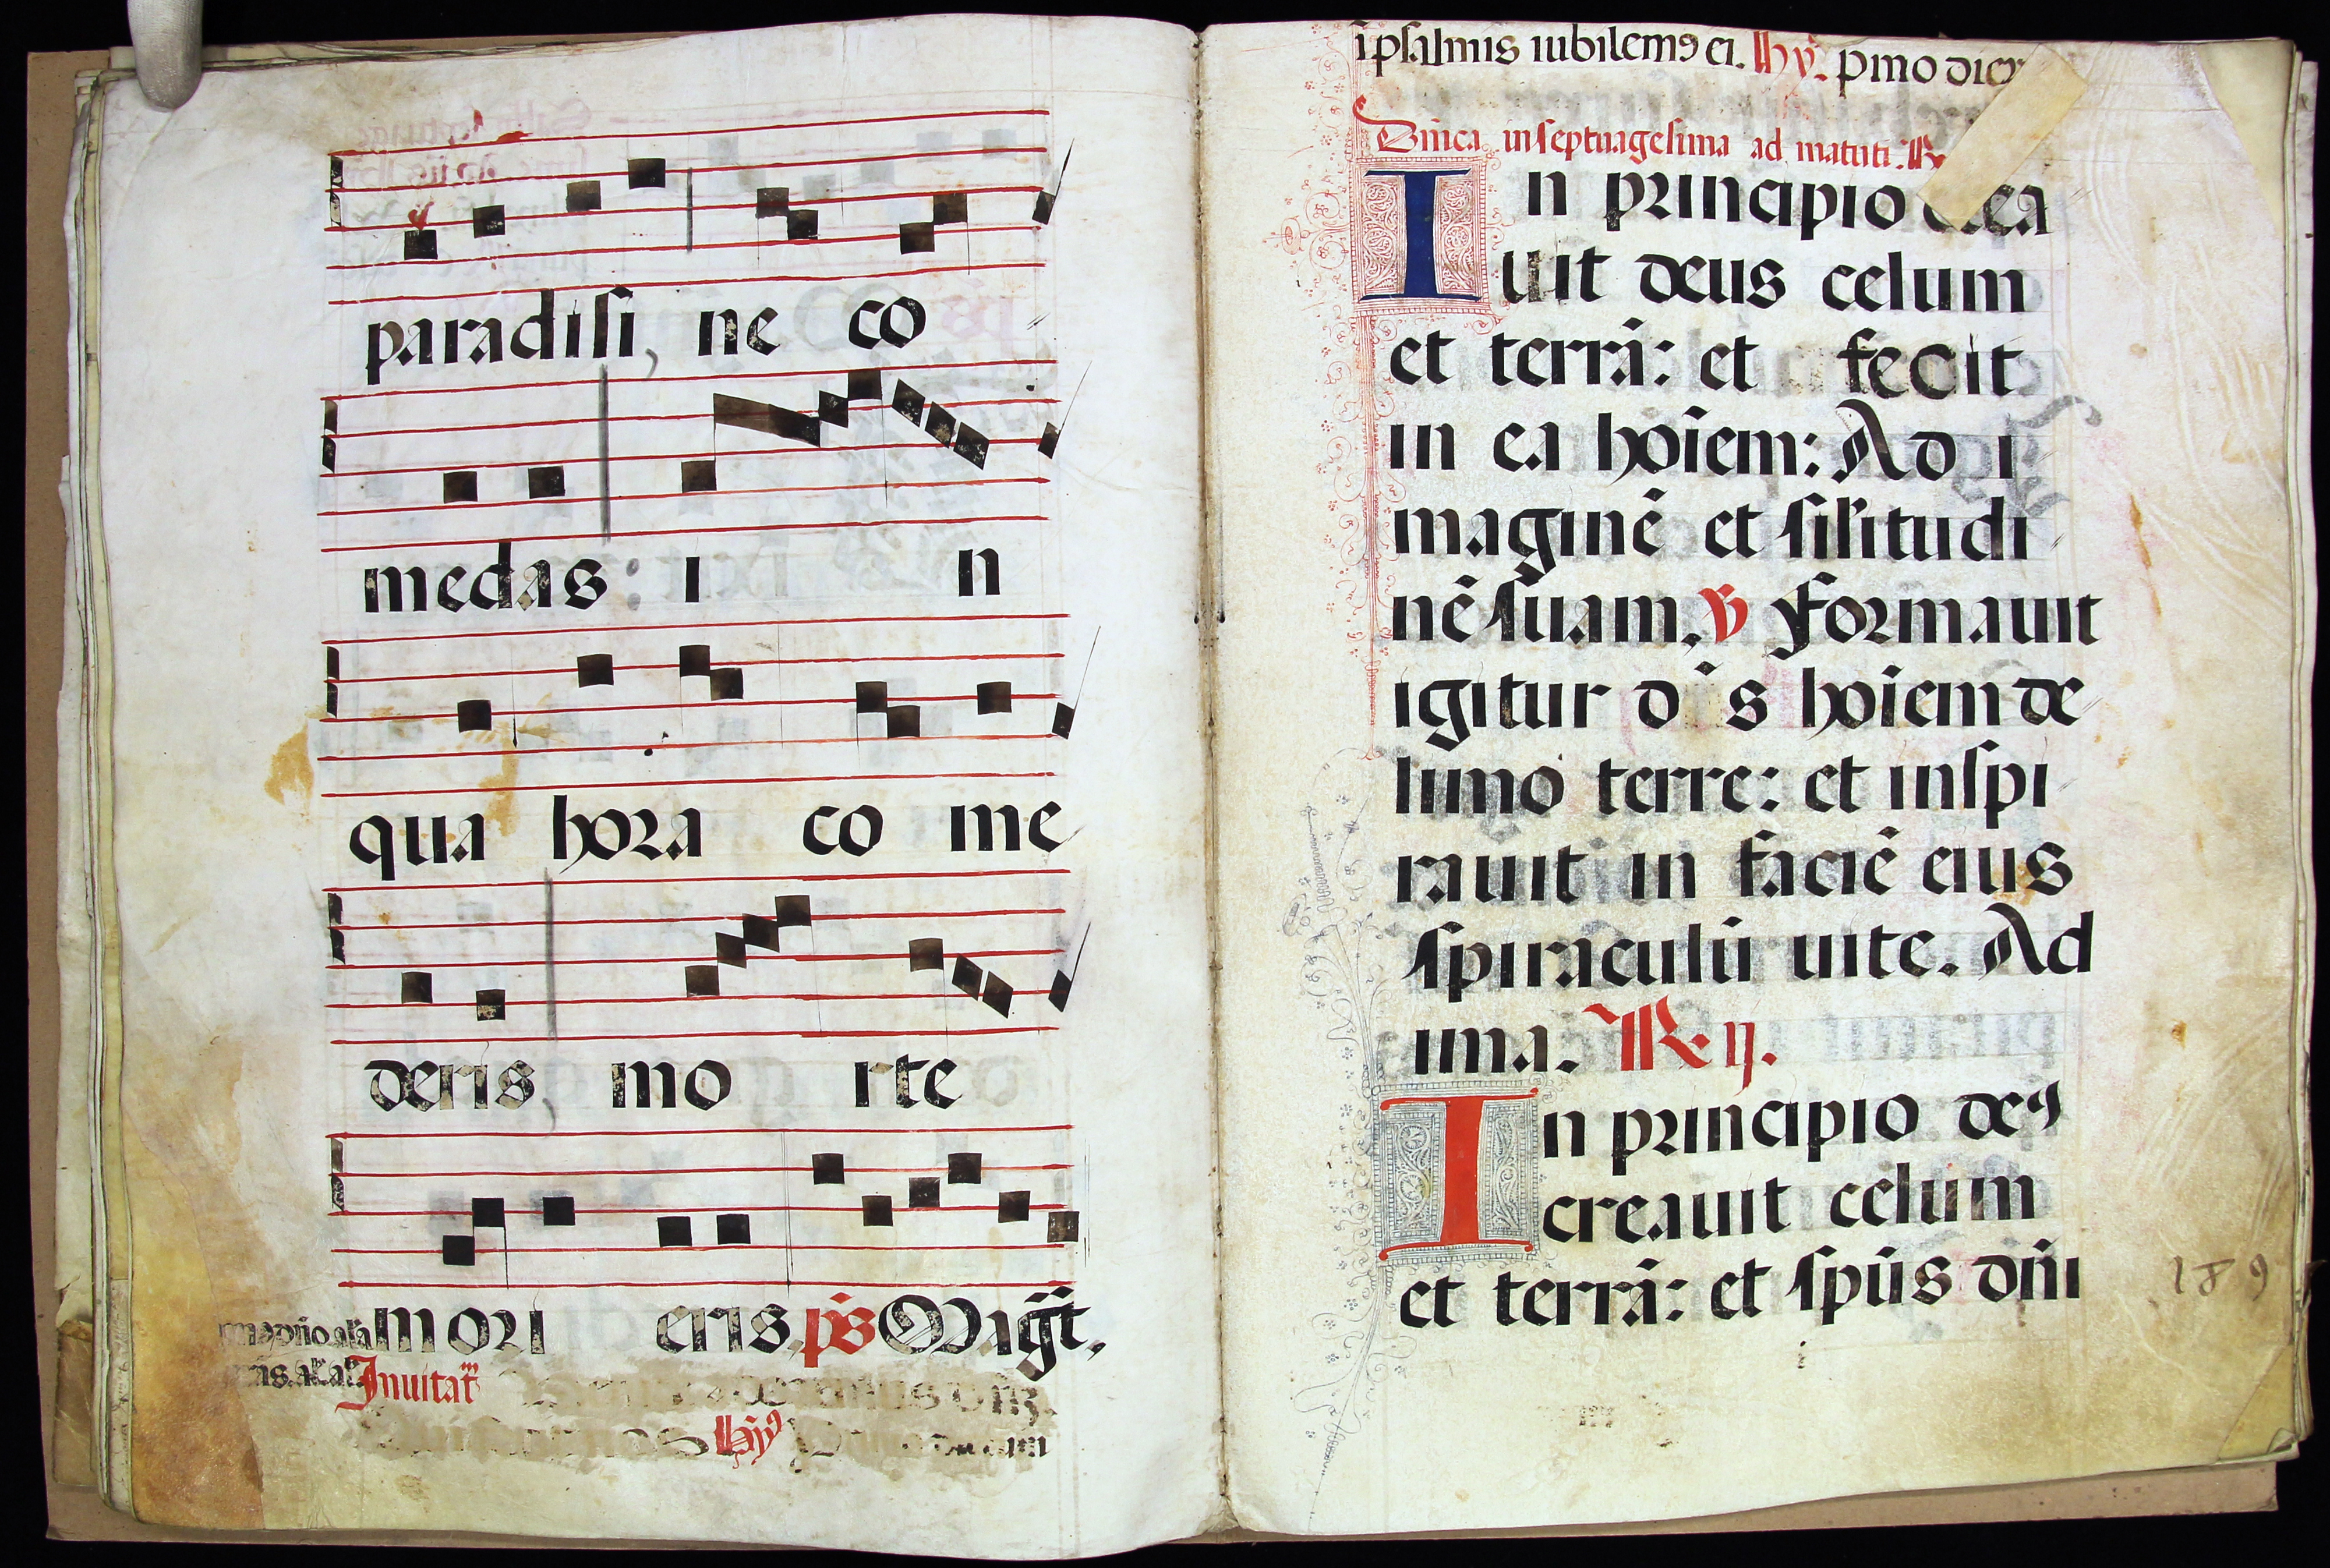 paradisi, ne co
medas: i n
qua hora co me
deris, mo rte
mori eris. ps̄ Magt̄,
Inuitat
hy
ī psalmis iubilemꝯ ei. hȳ. pmo dier
Dnica in septuagesima ad matuti. ꝶ
In principio crea
uit deus celum
et terrā: et fecit
in ea hoīem: Ad i
maginē et silitudi
nē suam. ℣ Formauit
igitur dn̄s hoīem de
limo terre: et inspi
rauit in faciē eius
spiraculū uite. Ad
ima. ꝶ ij.
In principio deꝯ
creauit celum
et terrā: et spūs dn̄i
189